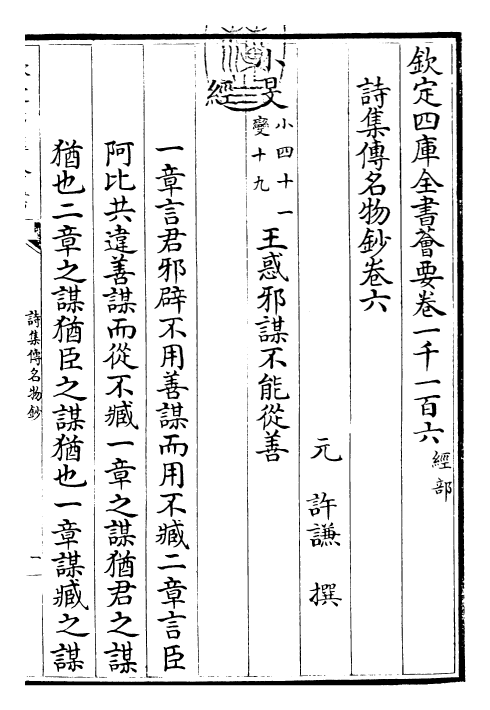 欽定四庫全書薈要卷一千一百六 經部
詩集傳名物鈔卷六
元 許謙 撰
小旻 小四十一 變十九 王惑邪謀不能從善
經
一章言君邪辟不用善謀而用不臧二章言臣
阿比共違善謀而從不臧一章之謀猶君之謀
猶也二章之謀猶臣之謀猶也一章謀臧之謀
詩集傳名物鈔
一